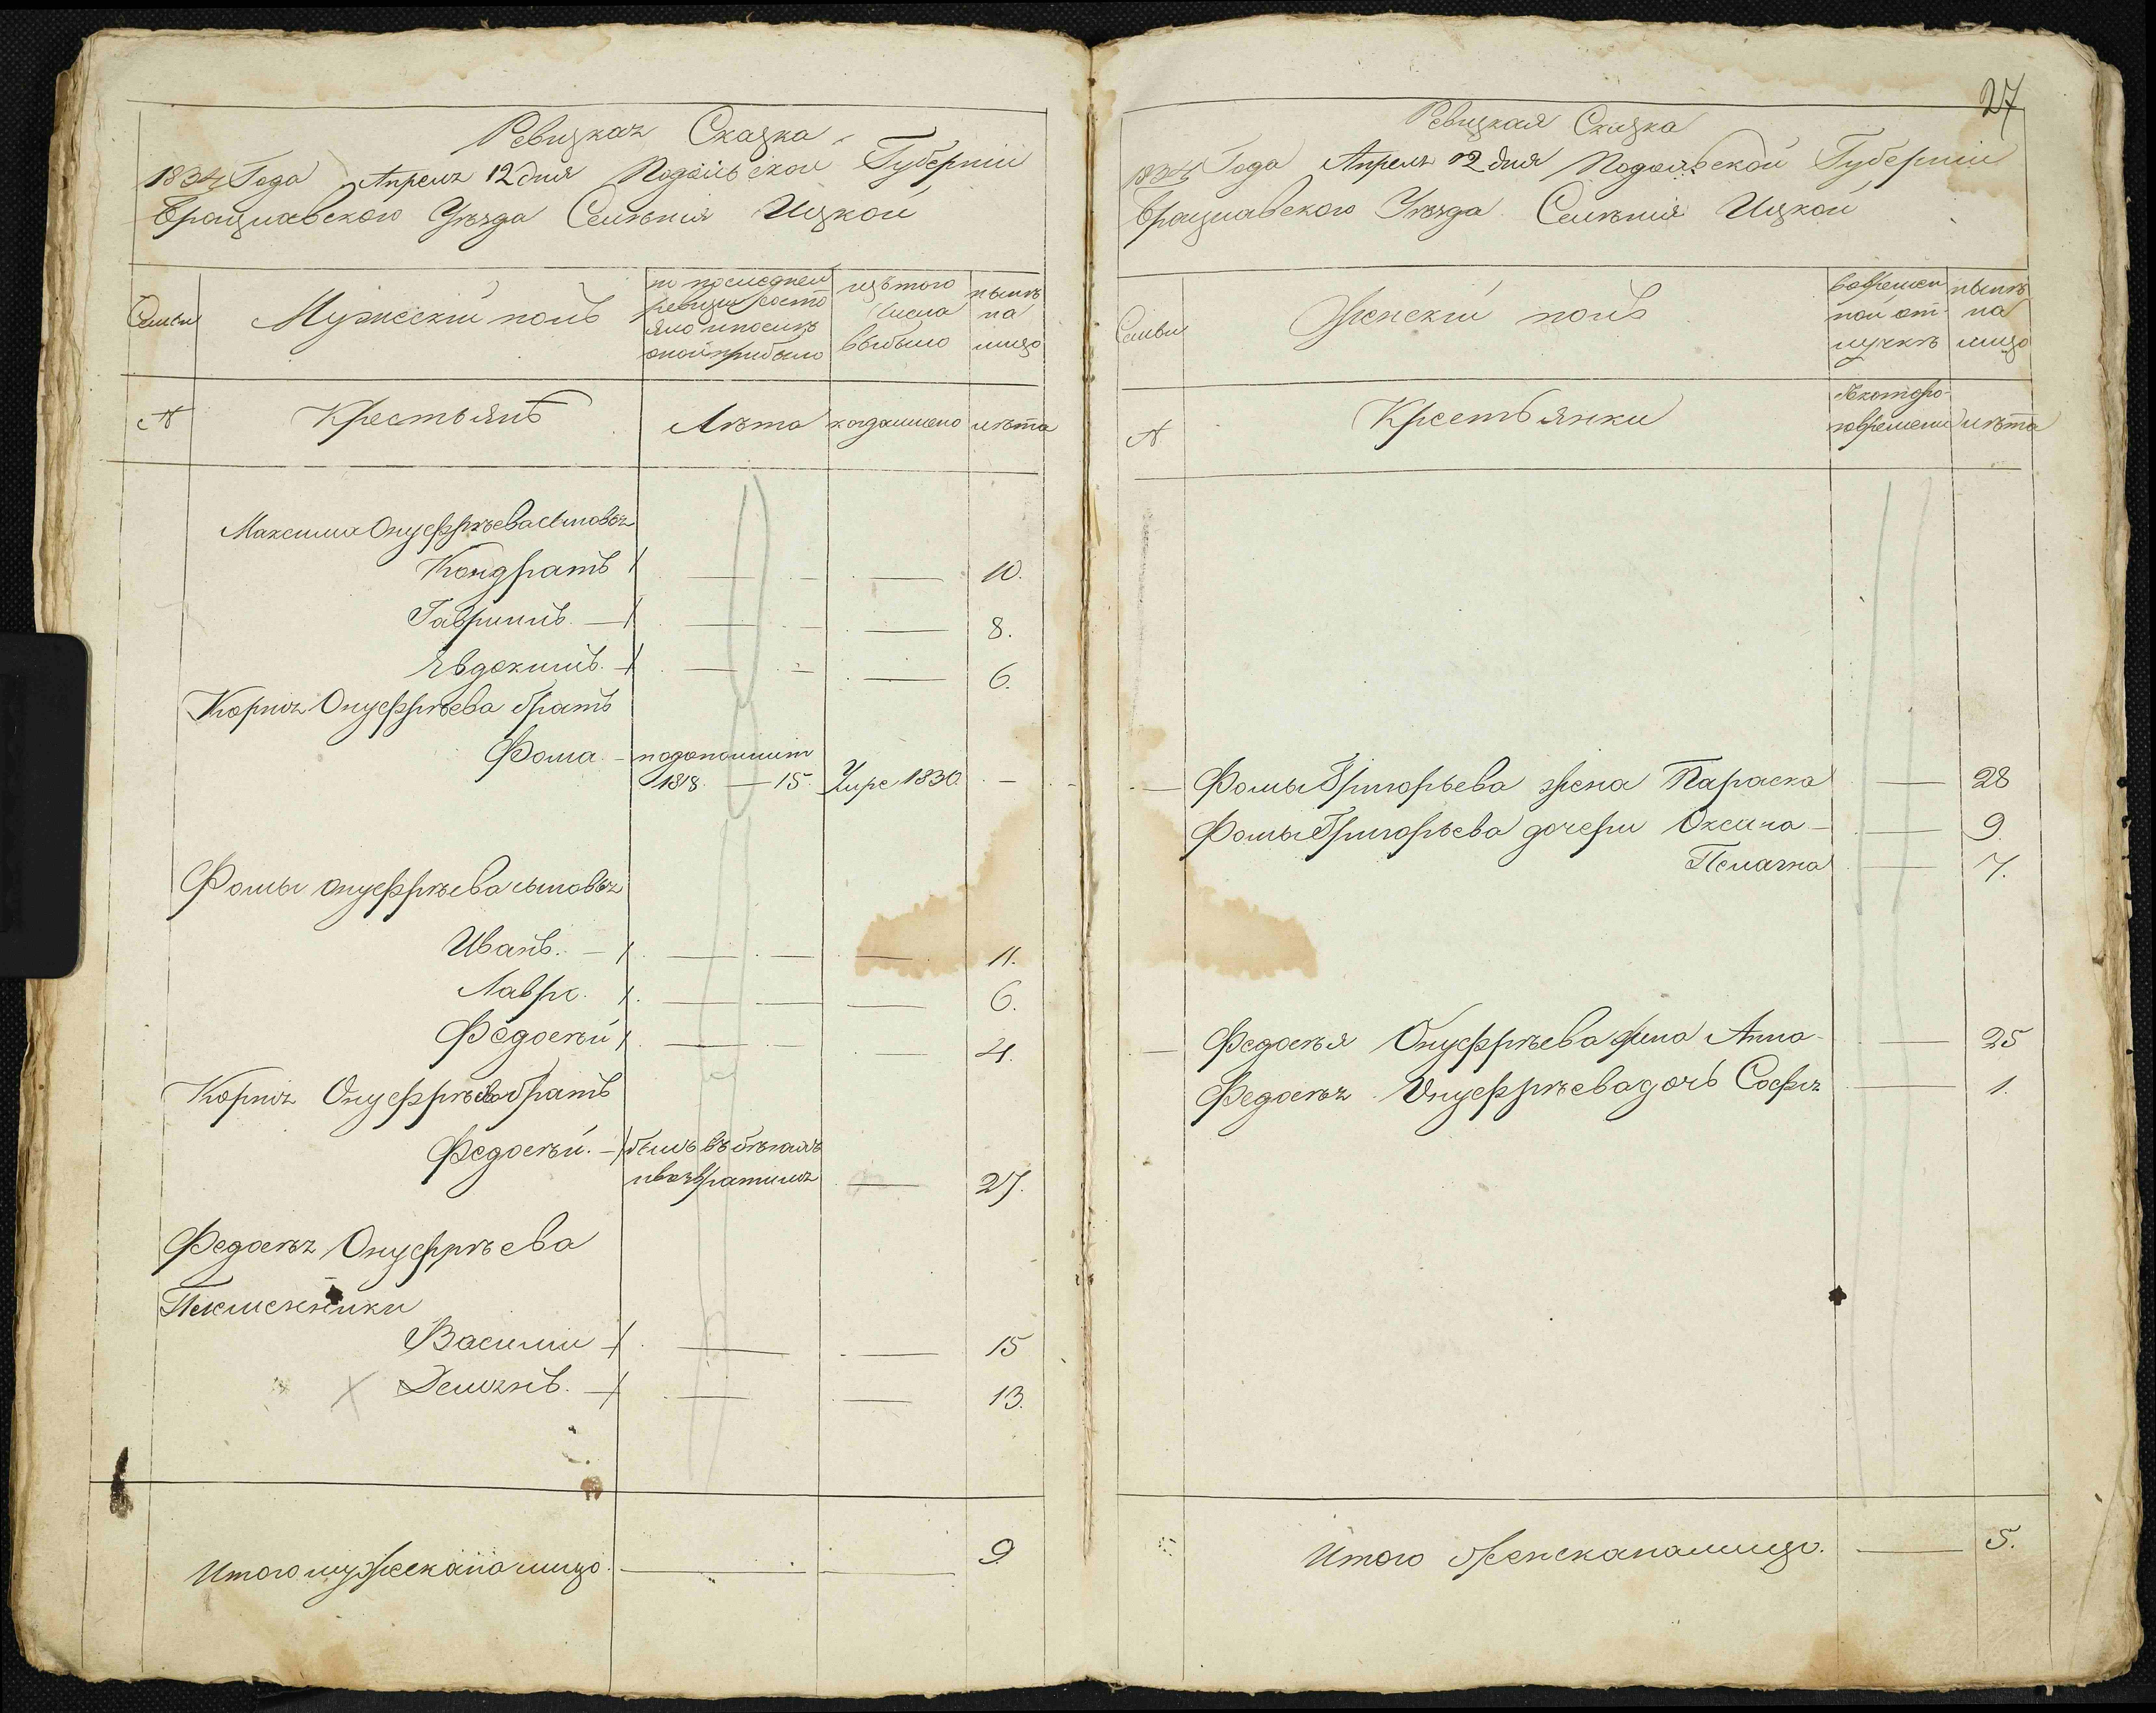 Ревизкая Сказка
1834 Года Апреля 12 дня Подольской Губерніи
Брацлавского Уѣзда Селѣнія Ицкой
Семьи
Мужескій полъ
по последней
ревизіи состо
яло и послѣ
оной прибыло
изътого
числа
выбыло
нынѣ
на
лицо
N
Крестьянъ
Лѣта
когда имено
лѣта
Максима Онуфрѣева сыновья
Кондратъ 10.
Гаврилъ. 8.
Явдокимъ. 6.
Корнея Онуфрѣева братъ
Фома. подополнит
1818. — 15. Умре 1830.
Фомы Онуфрѣева сыновья
Иванъ. 11.
Лавре. 6.
Федосѣй 4.
Корнея Онуфрѣева братъ
Федосѣй. былъ въ бѣгахъ
и возвратился 27.
Федосѣя Онуфрѣева
Племенники
Василии 15
Демянъ. 13.
Итого мужеска на лицо. 9
27
Ревизкая Сказка
1834 Года Апреля 12 дня Подольской Губерніи
Брацлавского Уѣзда Селѣнія Ицкой
Семьи
Женскій полъ
во времен
ной от-
лучкѣ
нынѣ
на
лицо
N
Крестьянки
с которо-
го времени
лѣта
Фомы Григорьева жена Параска 28
Фомы Григорьева дочери Оксина 9.
Пелагна 7.
Федосѣя Онуфрѣева жена Анна 25
Федосѣя Онуфрѣева дочь Софя 1.
Итого женска на лицо. 5.